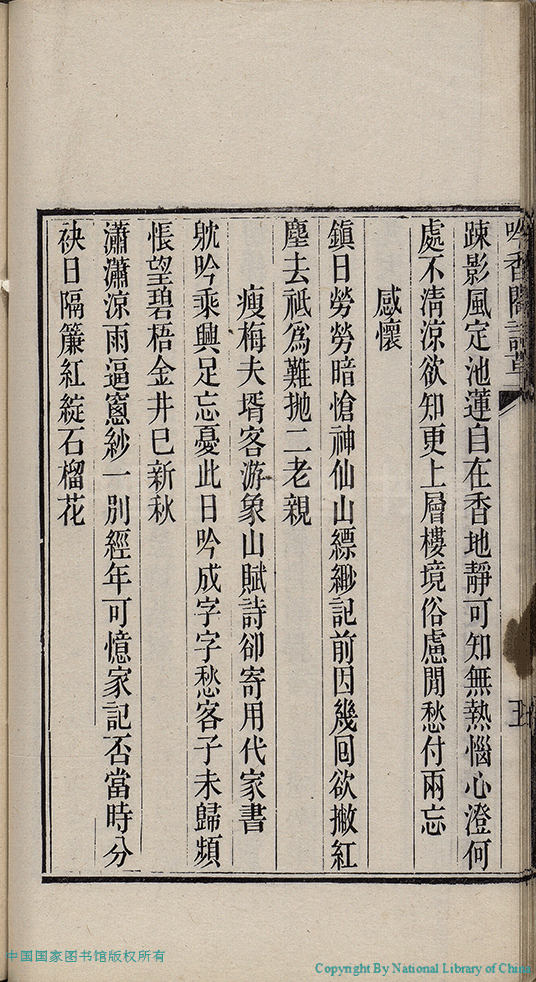 吟香閣詩草
疎影風定池蓮自在香地靜可知無熱惱心澄何
處不清涼欲知更上層樓境俗慮閒愁付兩忘
感懷
鎮日勞勞暗愴神仙山縹緲記前因幾囘欲撇紅
塵去祇爲難拋二老親
瘦梅夫壻客游象山賦詩卻寄用代家書
躭吟乘興足忘憂此日吟成字字愁客子未歸頻
悵望碧梧金井巳新秋
瀟瀟涼雨逼窻紗一別經年可憶家記否當時分
袂日隔簾紅綻石榴花
中国国家图书馆版权所有
Copyright By National Library of China